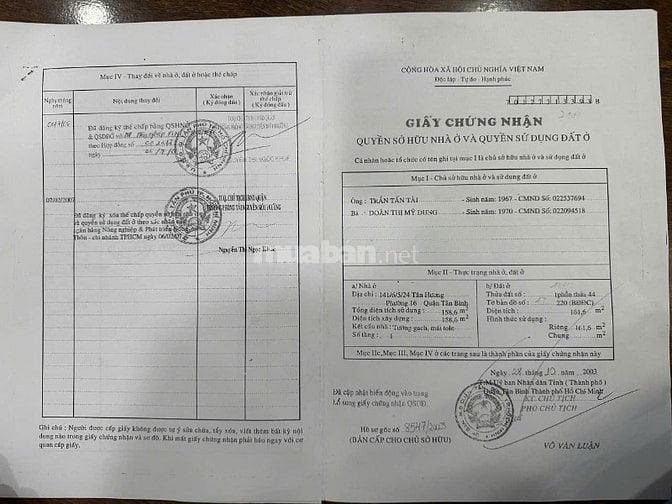 Mục IV - Thay đổi về nhà ở, đất ở hoặc thế chấp
Ngày tháng năm
Nội dung thay đổi
Xác nhận (Ký đóng dấu)
Xác nhận giải trừ thế chấp (Ký đóng dấu)
Đã đăng ký thế chấp bằng QSHN
& QSDĐỞ
theo Hợp đồng số
ngày
Đã đăng ký xóa thế chấp quyền sở hữu
quyền sử dụng đất ở theo xác nhận
ngân hàng Nông nghiệp & Phát triển Nông
Thôn - chi nhánh TPHCM ngày
Nguyễn Thị Ngọc
Ghi chú : Người được cấp giấy không được tự ý sửa chữa, tẩy xóa, viết thêm bất kỳ nội
dung nào trong giấy chứng nhận và sơ đồ. Khi mất giấy chứng nhận phải báo ngay với cơ
quan cấp giấy.
muaban.net
CỘNG HÒA XÃ HỘI CHỦ NGHĨA VIỆT NAM
Độc lập - Tự do - Hạnh phúc
GIẤY CHỨNG NHẬN
QUYỀN SỞ HỮU NHÀ Ở VÀ QUYỀN SỬ DỤNG ĐẤT Ở
Cá nhân hoặc tổ chức có tên ghi tại mục I là chủ sở hữu nhà ở và sử dụng đất ở
Mục I - Chủ sở hữu nhà ở và sử dụng đất ở
Ông - TRẦN TẤN TÀI - Sinh năm: 1967 - CMND Số: 022537694
Bà - DOÃN THỊ MỸ DUNG - Sinh năm: 1970 - CMND Số: 022094518
Mục II - Thực trạng nhà ở, đất ở
a/ Nhà ở
Địa chỉ : 141/6/5/24 Tân Hương
Phường 16 Quận Tân Bình
Tổng diện tích sử dụng : 158,6 m2
Diện tích xây dựng : 158,6 m2
Kết cấu nhà : Tường gạch, mái tole
Số tầng : 1
b/ Đất ở
Thửa đất số : 1phần thửa 44
Tờ bản đồ số : 220 (BĐĐC)
Diện tích : 161,6 m2
Hình thức sử dụng:
Riêng 161,6 m2
Chung m2
Mục IIc, Mục III, Mục IV ở các trang sau là thành phần của giấy chứng nhận này
Ngày 28 tháng 10 năm 2003
T.M Ủy ban Nhân dân Tỉnh (Thành phố)
Quận Tân Bình Thành phố Hồ Chí Minh
KT. CHỦ TỊCH
PHÓ CHỦ TỊCH
Đã cập nhật biến động vào trang
bổ sung giấy chứng nhận QSDĐ.
Hồ sơ gốc số 8547/2003
(BẢN CẤP CHO CHỦ SỞ HỮU)
VÕ VĂN LUẬN